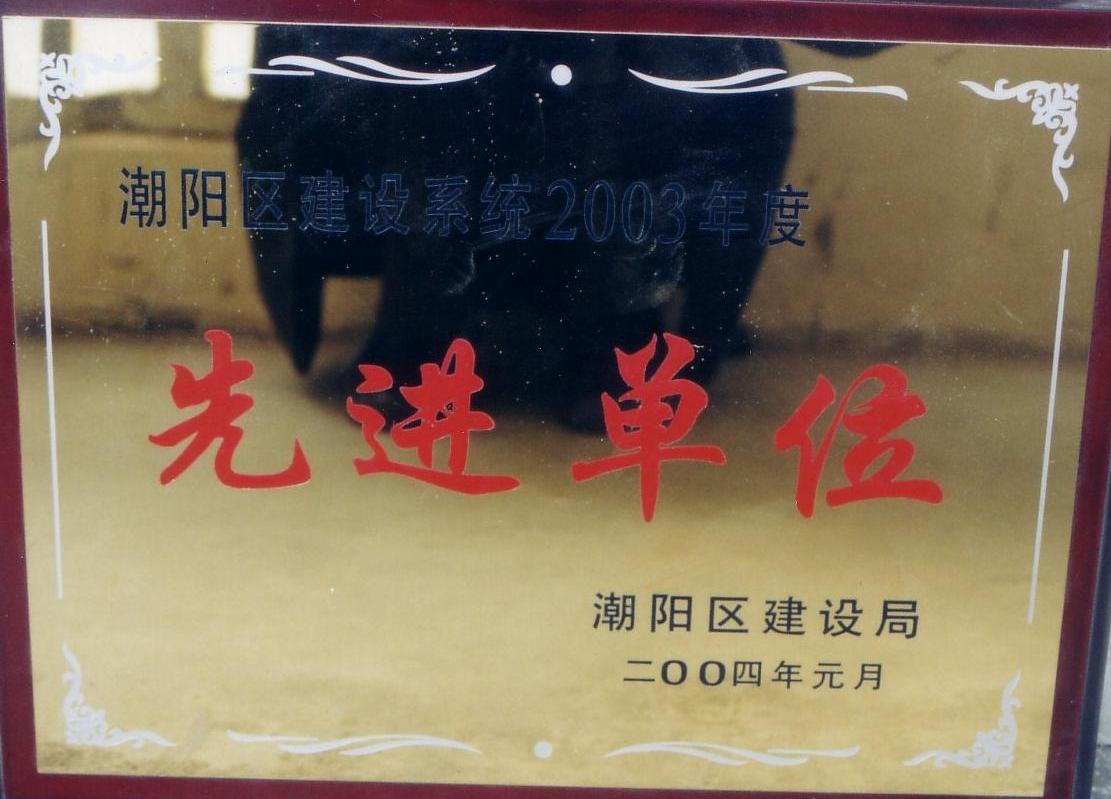 潮阳区建设系统2003年度
先进单位
潮阳区建设局
二00四年元月